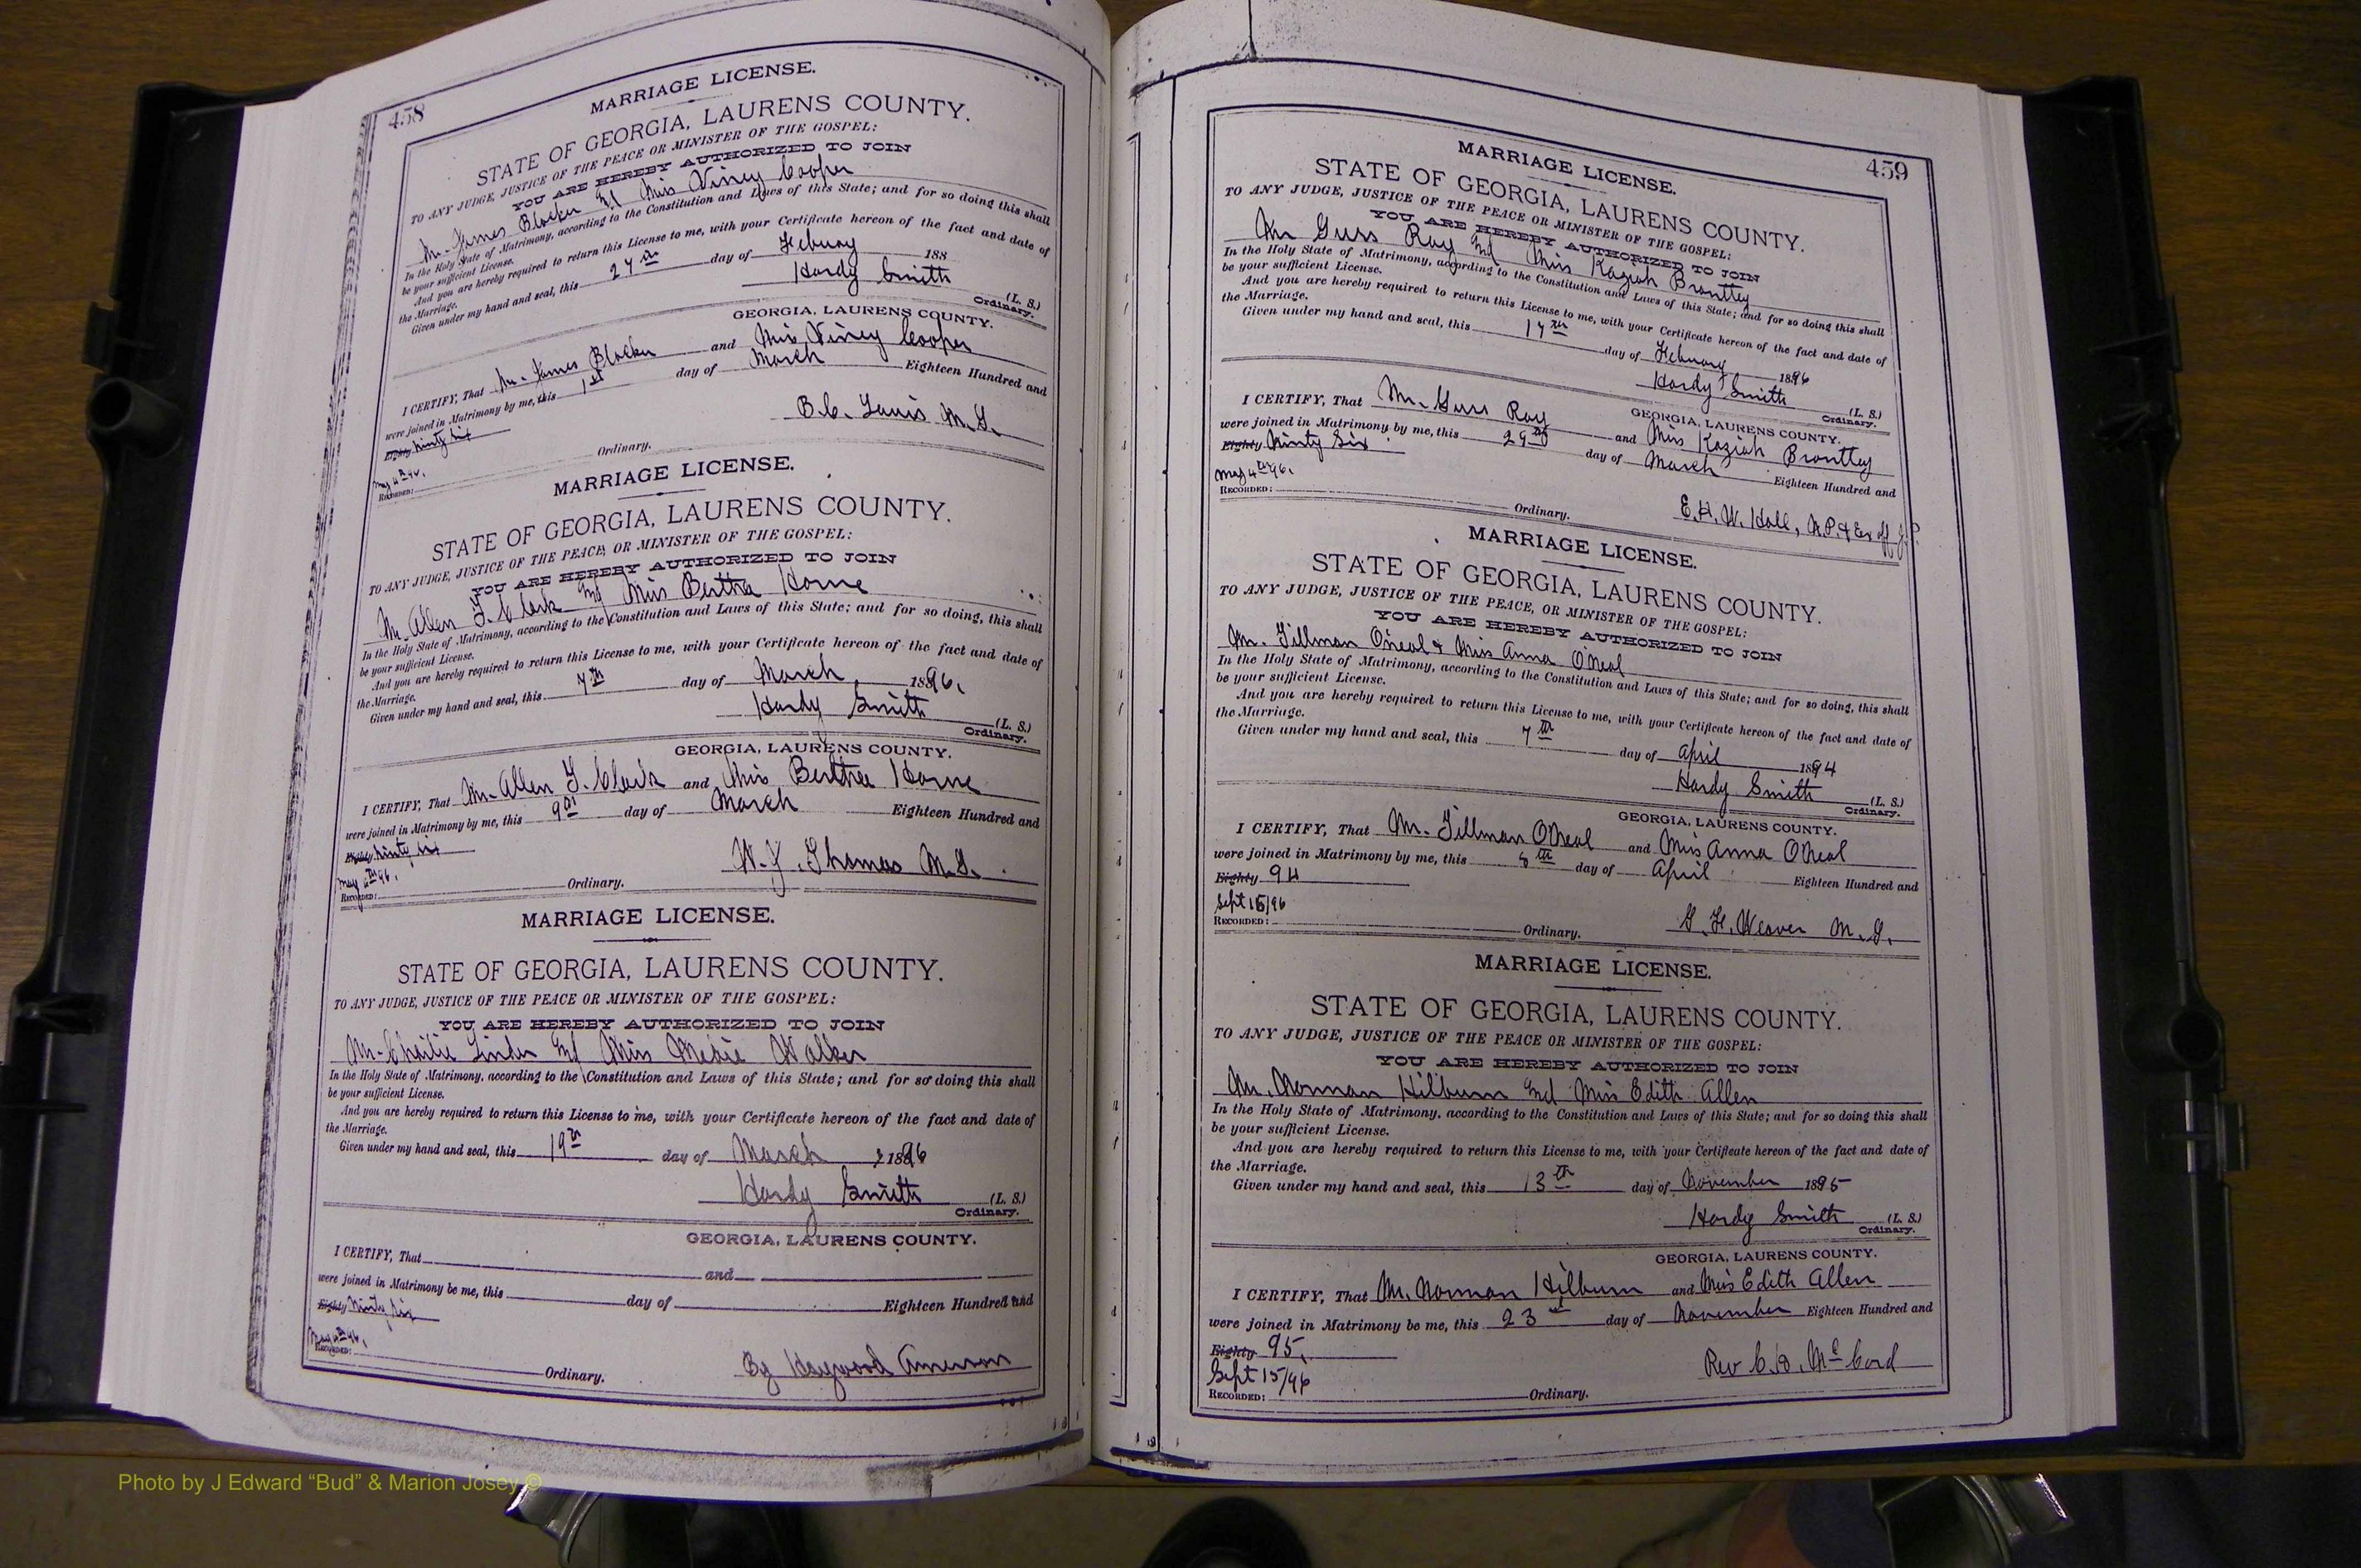 458
MARRIAGE LICENSE.
STATE OF GEORGIA, LAURENS COUNTY.
TO ANY JUDGE, JUSTICE OF THE PEACE OR MINISTER OF THE GOSPEL:
YOU ARE HEREBY AUTHORIZED TO JOIN
Mr. James Blacker and Miss Viney Cooper
In the Holy State of Matrimony, according to the Constitution and Laws of this State; and for so doing this shall
be your sufficient License.
And you are hereby required to return this License to me, with your Certificate hereon of the fact and date of
the Marriage.
Given under my hand and seal, this 27th day of Febuay 188
Hardy Smith (L. S.)
Ordinary.
GEORGIA, LAURENS COUNTY.
I CERTIFY, That Mr. James Blacker and Miss Viney Cooper
were joined in Matrimony by me, this 1st day of March Eighteen Hundred and
Eighty Ninty Six
B. C. Lewis M. G.
May 4th 96.
RECORDED: Ordinary.
MARRIAGE LICENSE.
STATE OF GEORGIA, LAURENS COUNTY.
TO ANY JUDGE, JUSTICE OF THE PEACE, OR MINISTER OF THE GOSPEL:
YOU ARE HEREBY AUTHORIZED TO JOIN
Mr. Allen T. Clark and Miss Bertha Horne
In the Holy State of Matrimony, according to the Constitution and Laws of this State; and for so doing, this shall
be your sufficient License.
And you are hereby required to return this License to me, with your Certificate hereon of the fact and date of
the Marriage.
Given under my hand and seal, this 7th day of March 1896.
Hardy Smith (L. S.)
Ordinary.
GEORGIA, LAURENS COUNTY.
I CERTIFY, That Mr. Allen T. Clark and Miss Bertha Horne
were joined in Matrimony by me, this 9th day of March Eighteen Hundred and
Eighty Ninty Six
W. J. Thomas M. G.
May 4th 96.
RECORDED: Ordinary.
MARRIAGE LICENSE.
STATE OF GEORGIA, LAURENS COUNTY.
TO ANY JUDGE, JUSTICE OF THE PEACE OR MINISTER OF THE GOSPEL:
YOU ARE HEREBY AUTHORIZED TO JOIN
Mr. Charlie Linder and Miss Walker
In the Holy State of Matrimony, according to the Constitution and Laws of this State; and for so doing this shall
be your sufficient License.
And you are hereby required to return this License to me, with your Certificate hereon of the fact and date of
the Marriage.
Given under my hand and seal, this 19th day of March 1896
Hardy Smith (L. S.)
Ordinary.
GEORGIA, LAURENS COUNTY.
I CERTIFY, That and
were joined in Matrimony be me, this day of Eighteen Hundred and
Eighty Ninty Six
May 4th 96.
RECORDED: Ordinary.
By Haywood Amerson
459
MARRIAGE LICENSE.
STATE OF GEORGIA, LAURENS COUNTY.
TO ANY JUDGE, JUSTICE OF THE PEACE OR MINISTER OF THE GOSPEL:
YOU ARE HEREBY AUTHORIZED TO JOIN
Mr Guss Roy and Miss Kaziah Brantley
In the Holy State of Matrimony, according to the Constitution and Laws of this State; and for so doing this shall
be your sufficient License.
And you are hereby required to return this License to me, with your Certificate hereon of the fact and date of
the Marriage.
Given under my hand and seal, this 17th day of Febuary 1896
Hardy Smith (L. S.)
Ordinary.
GEORGIA, LAURENS COUNTY.
I CERTIFY, That Mr. Guss Roy and Miss Kaziah Brantley
were joined in Matrimony by me, this 29th day of March Eighteen Hundred and
Eighty Ninty Six
May 4th 96.
E. H. W. Hall, N. P. & Ex off J. P.
RECORDED: Ordinary.
MARRIAGE LICENSE.
STATE OF GEORGIA, LAURENS COUNTY.
TO ANY JUDGE, JUSTICE OF THE PEACE, OR MINISTER OF THE GOSPEL:
YOU ARE HEREBY AUTHORIZED TO JOIN
Mr. Tillman O'Neal & Miss Anna O'Neal
In the Holy State of Matrimony, according to the Constitution and Laws of this State; and for so doing, this shall
be your sufficient License.
And you are hereby required to return this License to me, with your Certificate hereon of the fact and date of
the Marriage.
Given under my hand and seal, this 7th day of April 1894
Hardy Smith (L. S.)
Ordinary.
GEORGIA, LAURENS COUNTY.
I CERTIFY, That Mr. Tillman ONeal and Miss Anna ONeal
were joined in Matrimony by me, this 8th day of April Eighteen Hundred and
Eighty 94
Sept 15/96
G. F. Weaver M. G.
RECORDED: Ordinary.
MARRIAGE LICENSE.
STATE OF GEORGIA, LAURENS COUNTY.
TO ANY JUDGE, JUSTICE OF THE PEACE OR MINISTER OF THE GOSPEL:
YOU ARE HEREBY AUTHORIZED TO JOIN
Mr. Norman Hilburn and Miss Edith Allen
In the Holy State of Matrimony, according to the Constitution and Laws of this State; and for so doing this shall
be your sufficient License.
And you are hereby required to return this License to me, with your Certificate hereon of the fact and date of
the Marriage.
Given under my hand and seal, this 13th day of November 1895
Hardy Smith (L. S.)
Ordinary.
GEORGIA, LAURENS COUNTY.
I CERTIFY, That Mr. Norman Hilburn and Miss Edith Allen
were joined in Matrimony be me, this 23 day of November Eighteen Hundred and
Eighty 95.
Sept 15/96
Rev C. D. McCord
RECORDED: Ordinary.
Photo by J Edward “Bud” & Marion Josey ©